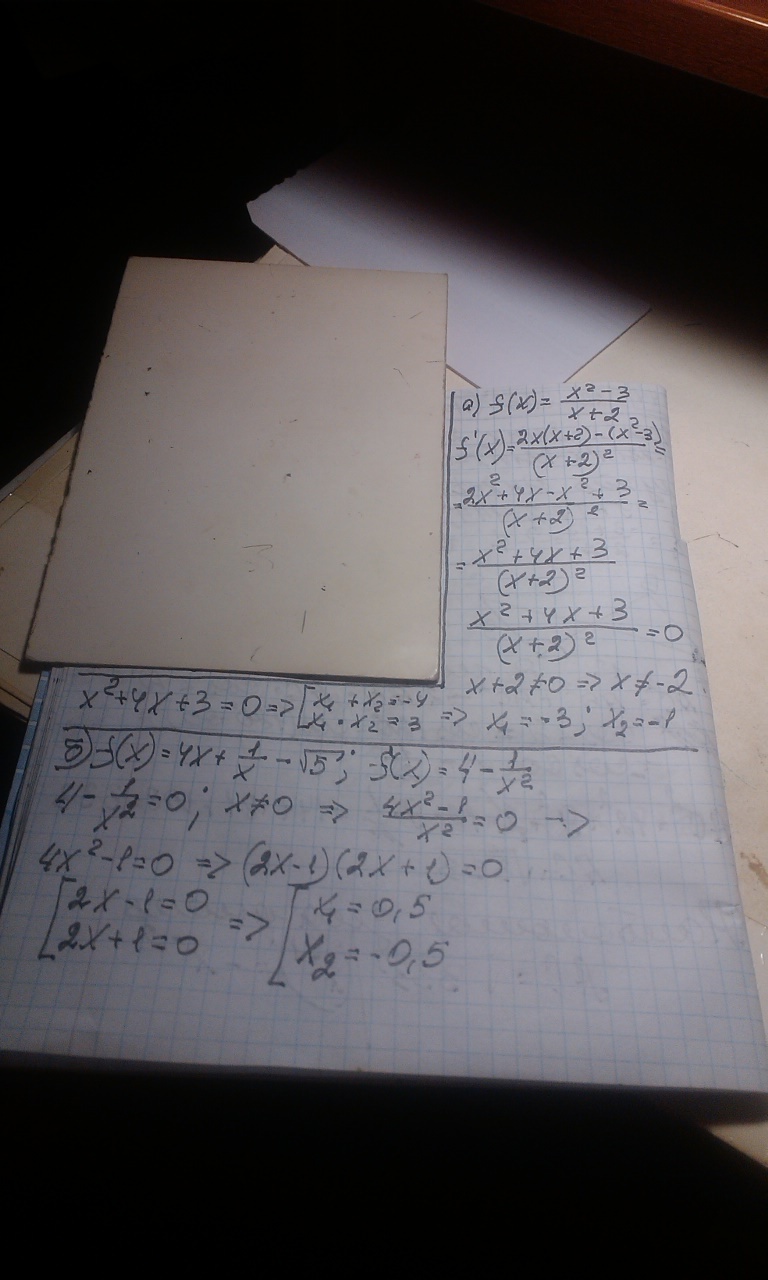 а) f(x) = (x² - 3)/(x + 2)
f'(x) = (2x(x+2) - (x² - 3))/(x+2)² =
= (2x² + 4x - x² + 3)/(x+2)² =
= (x² + 4x + 3)/(x+2)²
(x² + 4x + 3)/(x+2)² = 0
x + 2 ≠ 0 => x ≠ -2
x² + 4x + 3 = 0 => [x₁ + x₂ = -4
x₁ · x₂ = 3 => x₁ = -3; x₂ = -1
б) f(x) = 4x + 1/x - √5; f'(x) = 4 - 1/x²
4 - 1/x² = 0; x ≠ 0 => (4x² - 1)/x² = 0 =>
4x² - 1 = 0 => (2x-1)(2x+1) = 0
[2x - 1 = 0 => [x₁ = 0,5
2x + 1 = 0 x₂ = -0,5